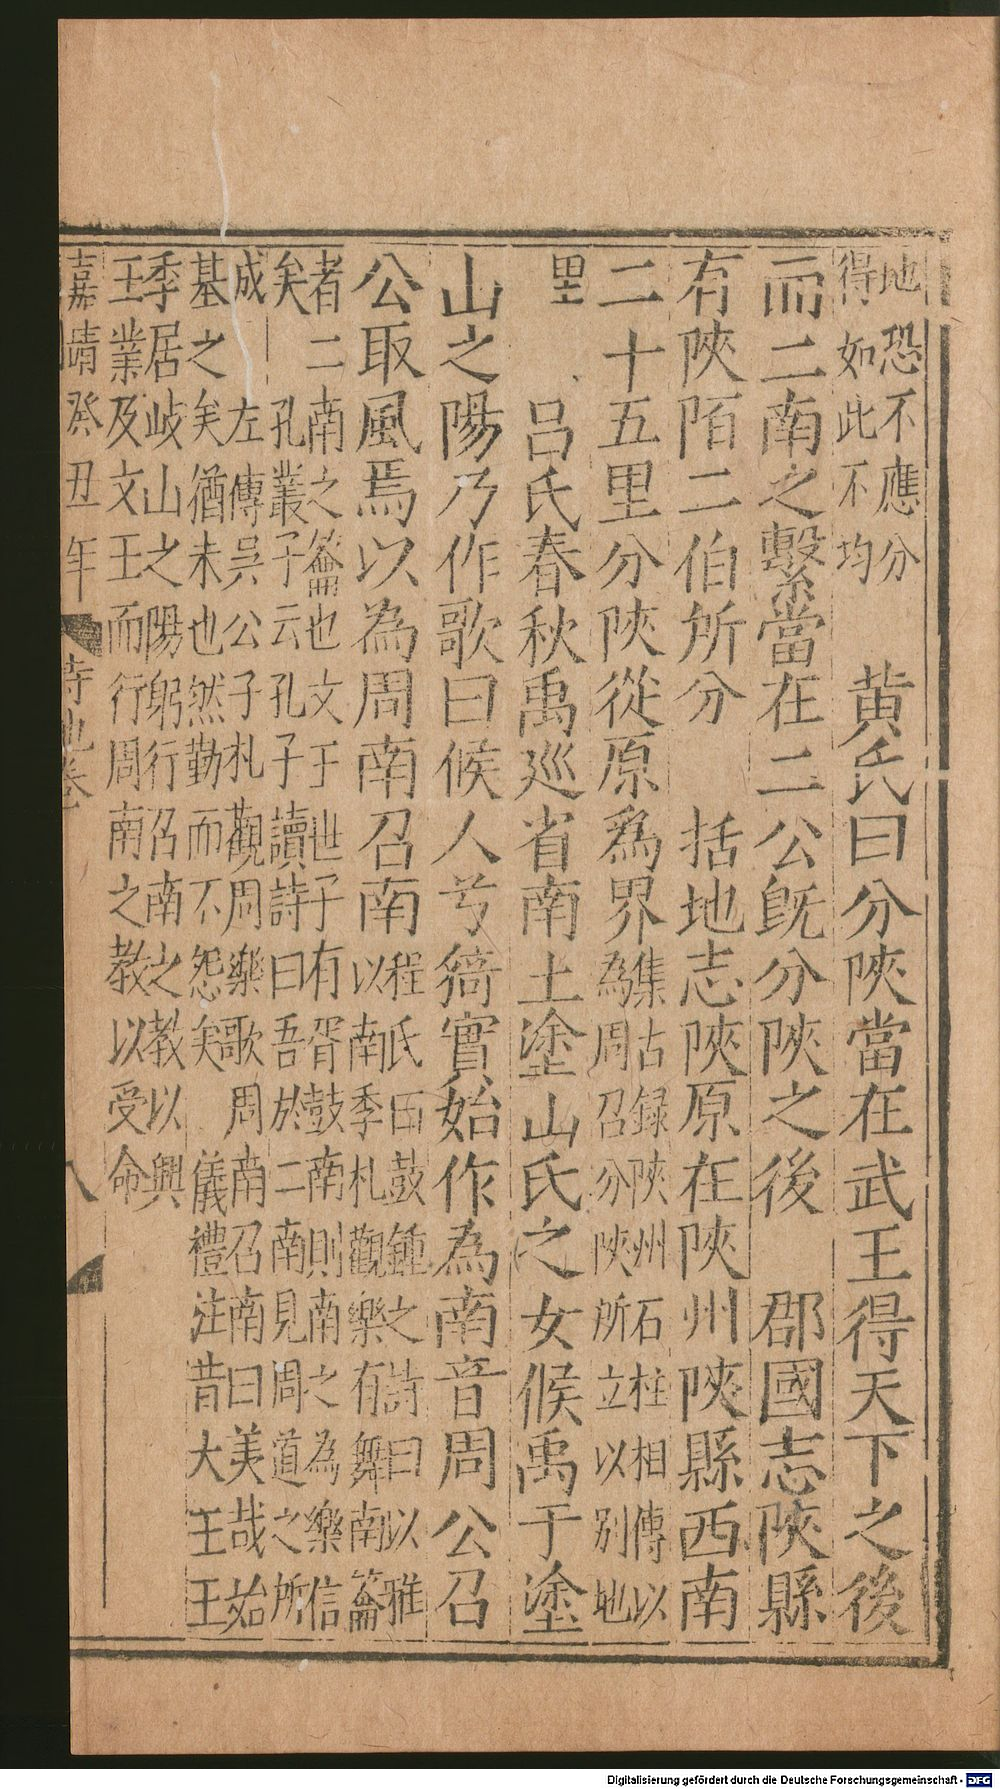 地恐不應分
得如此不均
黄氏曰分陜當在武王得天下之後
而二南之繫當在二公旣分陜之後　郡國志陜縣
有陜陌二伯所分　括地志陜原在陜州陜縣西南
二十五里分陜從原爲界
集古録陜州石柱相傳以
為周召分陜所立以别地
里
呂氏春秋禹巡省南土塗山氏之女候禹于塗
山之陽乃作歌曰候人兮猗實始作為南音周公召
公取風焉以為周南召南
程氏曰鼓鍾之詩曰以雅
以南季札觀樂有舞南籥
者二南之籥也文于世子有胥鼓南則南之為樂信
矣　孔叢子云孔子讀詩曰吾於二南見周道之所
成　左傳吳公子札觀周樂歌周南召南曰美哉始
基之矣猶未也然勤而不怨矣　儀禮注昔大王王
季居岐山之陽躬行召南之教以興
王業及文王而行周南之教以受命
嘉靖癸丑年
詩地卷一
八
Digitalisierung gefördert durch die Deutsche Forschungsgemeinschaft - DFG